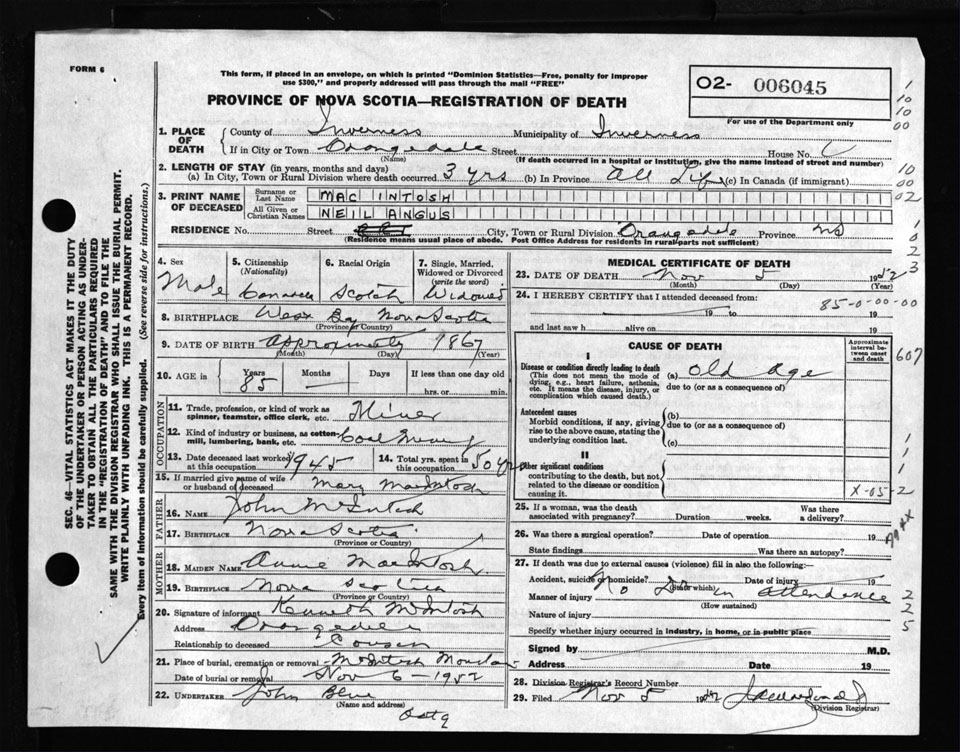 FORM 6
This form, if placed in an envelope, on which is printed "Dominion Statistics—Free, penalty for improper
use $300," and properly addressed will pass through the mail "FREE"
O2- 006045
For use of the Department only
PROVINCE OF NOVA SCOTIA—REGISTRATION OF DEATH
1. PLACE OF DEATH { County of Inverness Municipality of Inverness
If in City or Town Orangedale Street House No.
(Name) (If death occurred in a hospital or institution, give the name instead of street and number)
2. LENGTH OF STAY (in years, months and days)
(a) In City, Town or Rural Division where death occurred 3 yrs (b) In Province All Life (c) In Canada (if immigrant)
3. PRINT NAME OF DECEASED { Surname or Last Name MAC INTOSH
All Given or Christian Names NEIL ANGUS
RESIDENCE No. Street City, Town or Rural Division Orangedale Province NS
(Residence means usual place of abode. Post Office Address for residents in rural parts not sufficient)
4. Sex Male
5. Citizenship (Nationality)
6. Racial Origin Scotch
7. Single, Married, Widowed or Divorced (write the word) Widowed
8. BIRTHPLACE West Bay Nova Scotia
(Province or Country)
9. DATE OF BIRTH Approximately 1867
(Month) (Day) (Year)
10. AGE in Years 85 Months Days If less than one day old
hrs. or min.
OCCUPATION
11. Trade, profession, or kind of work as spinner, teamster, office clerk, etc. Miner
12. Kind of industry or business, as cotton-mill, lumbering, bank, etc. Coal Mining
13. Date deceased last worked at this occupation 1945
14. Total yrs. spent in this occupation 50 yrs
15. If married give name of wife or husband of deceased Mary MacIntosh
FATHER
16. NAME John McIntosh
17. BIRTHPLACE Nova Scotia
(Province or Country)
MOTHER
18. MAIDEN NAME Annie MacIntosh
19. BIRTHPLACE Nova Scotia
(Province or Country)
20. Signature of informant Kenneth McIntosh
Address Orangedale
Relationship to deceased Cousin
21. Place of burial, cremation or removal McIntosh
Date of burial or removal Nov 6-1952
22. UNDERTAKER John Blue
(Name and address)
MEDICAL CERTIFICATE OF DEATH
23. DATE OF DEATH Nov 5 1952
(Month) (Day) (Year)
24. I HEREBY CERTIFY that I attended deceased from:
85-0-00-00
19 to 19
and last saw h alive on 19
CAUSE OF DEATH
Approximate interval between onset and death
I
Disease or condition directly leading to death (a) Old Age
(This does not mean the mode of dying, e.g., heart failure, asthenia, etc. It means the disease, injury, or complication which caused death.) due to (or as a consequence of)
607
Antecedent causes (b)
Morbid conditions, if any, giving rise to the above cause, stating the underlying condition last. due to (or as a consequence of)
(c)
II
Other significant conditions
contributing to the death, but not
related to the disease or condition
causing it.
X-05-2
25. If a woman, was the death associated with pregnancy? Duration weeks. Was there a delivery?
26. Was there a surgical operation? Date of operation 19
State findings Was there an autopsy?
27. If death was due to external causes (violence) fill in also the following:—
Accident, suicide or homicide? Date of injury 19
(State which)
No Dr in attendance
Manner of injury
(How sustained)
Nature of injury
Specify whether injury occurred in industry, in home, or in public place
Signed by M.D.
Address Date 19
28. Division Registrar's Record Number
29. Filed Nov 5 1952
(Division Registrar)
SEC. 46—VITAL STATISTICS ACT MAKES IT THE DUTY
OF THE UNDERTAKER OR PERSON ACTING AS UNDER-
TAKER TO OBTAIN ALL THE PARTICULARS REQUIRED
IN THE "REGISTRATION OF DEATH" AND TO FILE THE
SAME WITH THE DIVISION REGISTRAR WHO SHALL ISSUE THE BURIAL PERMIT.
WRITE PLAINLY WITH UNFADING INK. THIS IS A PERMANENT RECORD.
Every item of information should be carefully supplied. (See reverse side for instructions.)